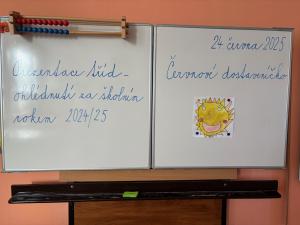 Prezentace tříd -
ohlédnutí za školním
rokem 2024/25
24. června 2025
Červnové dostaveníčko